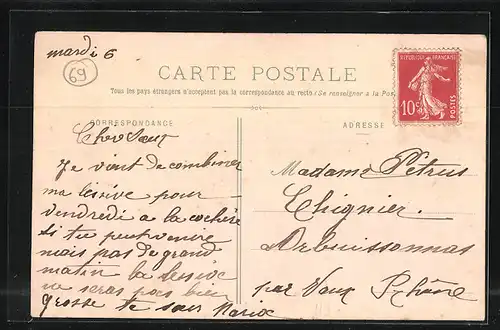 mardi 6
69
CARTE POSTALE
Tous les pays étrangers n'acceptent pas la correspondance au recto (Se renseigner à la Pos
RÉPUBLIQUE FRANÇAISE
10c
POSTES
CORRESPONDANCE
ADRESSE
Cher Sœur
Je vient de combiner
ma lessive pour
vendredi a la
si tu peut venire
mais pas de grand
matin la lessive
ne seras pas bien
grosse ta sœur Maria
Madame Pétrus
Chignier.
Arbuissonnas
par Vaux Rhône